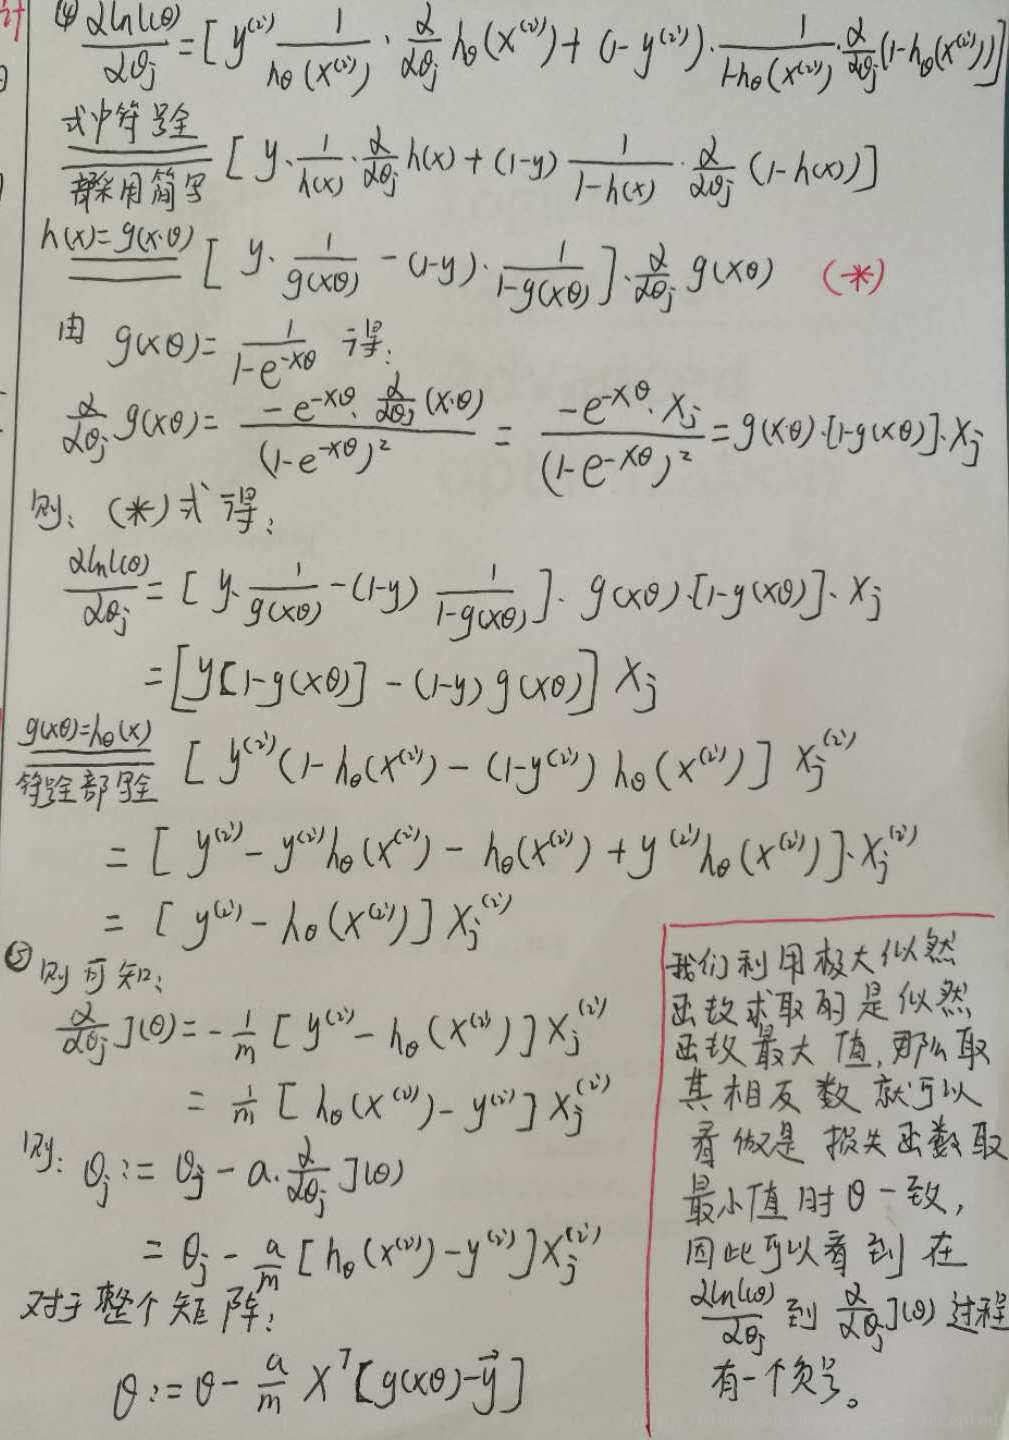 计
④ ∂lnL(θ)/∂θj = [ y^(i) 1/hθ(x^(i)) · ∂/∂θj hθ(x^(i)) + (1-y^(i)) · 1/1-hθ(x^(i)) · ∂/∂θj (1-hθ(x^(i))) ]
式中符号全部采用简写 [ y · 1/h(x) · ∂/∂θj h(x) + (1-y) 1/1-h(x) · ∂/∂θj (1-h(x)) ]
h(x)=g(x·θ) [ y · 1/g(xθ) - (1-y) · 1/1-g(xθ) ] · ∂/∂θj g(xθ) (*)
由 g(xθ) = 1/1-e^-xθ 得:
∂/∂θj g(xθ) = -e^-xθ · ∂/∂θj (x·θ)/(1-e^-xθ)² = -e^-xθ · xj/(1-e^-xθ)² = g(x·θ)·[1-g(xθ)]·xj
则: (*)式得:
∂lnL(θ)/∂θj = [ y · 1/g(xθ) - (1-y) 1/1-g(xθ) ] · g(xθ)·[1-g(xθ)]·xj
= [ y[1-g(xθ)] - (1-y) g(xθ) ] xj
g(xθ)=hθ(x) 符号全部写全 [ y^(i) (1-hθ(x^(i)) - (1-y^(i)) hθ(x^(i)) ] xj^(i)
= [ y^(i) - y^(i) hθ(x^(i)) - hθ(x^(i)) + y^(i) hθ(x^(i)) ] · xj^(i)
= [ y^(i) - hθ(x^(i)) ] xj^(i)
⑤ 则可知:
∂/∂θj J(θ) = -1/m [ y^(i) - hθ(x^(i)) ] xj^(i)
= 1/m [ hθ(x^(i)) - y^(i) ] xj^(i)
则: θj := θj - a · ∂/∂θj J(θ)
= θj - a/m [ hθ(x^(i)) - y^(i) ] xj^(i)
对于整个矩阵:
θ := θ - a/m X^T [ g(xθ) - y⃗ ]
我们利用极大似然
函数求取的是似然
函数最大值,那么取
其相反数就可以
看做是损失函数取
最小值时θ一致,
因此可以看到在
∂lnL(θ)/∂θj 到 ∂/∂θj J(θ) 过程
有一个负号。